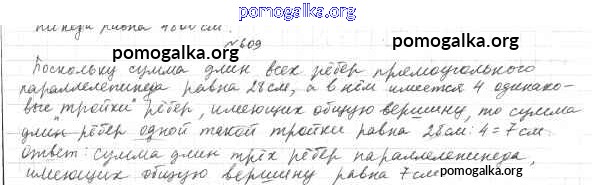 pomogalka.org
пипеда равна 4800 см.
pomogalka.org
№609
pomogalka.org
Поскольку сумма длин всех рёбер прямоугольного
параллелепипеда равна 28см, а в нём имеется 4 одинако-
вые "тройки" рёбер, имеющих общую вершину, то сумма
длин рёбер одной такой тройки равна 28см:4=7см
Ответ: сумма длин трёх рёбер параллелепипеда,
имеющих общую вершину равна 7см
pomogalka.org
pomogalka.org